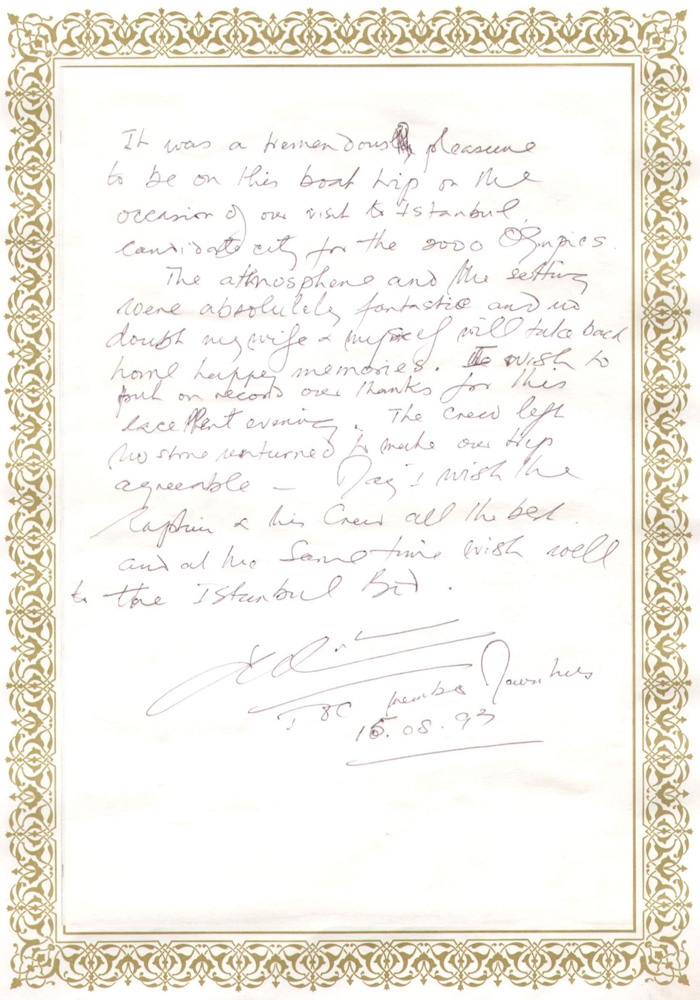 It was a tremendous pleasure
to be on this boat trip on the
occasion of our visit to Istanbul,
candidate city for the 2000 Olympics.
The atmosphere and the setting
were absolutely fantastic and no
doubt my wife & myself will take back
home happy memories. I wish to
put on record our thanks for this
excellent evening. The crew left
no stone unturned to make our trip
agreeable - May I wish the
Captain & his Crew all the best.
and at the same time wish well
to the Istanbul Bid.
IOC member Mauritius
15.08.93